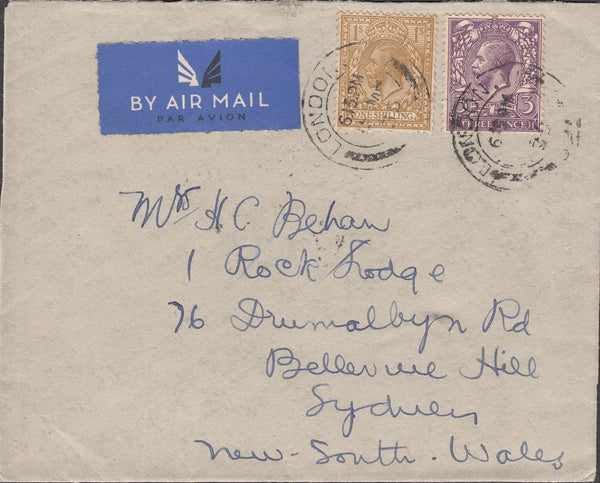 BY AIR MAIL
PAR AVION
1S 1S
ONE SHILLING
3
THREE PENCE
LONDON
6 15 PM
LONDON
6 15 PM
Mrs H C Behan
1 Rock Lodge
76 Drumalbyn Rd
Bellevue Hill
Sydney
New-South-Wales